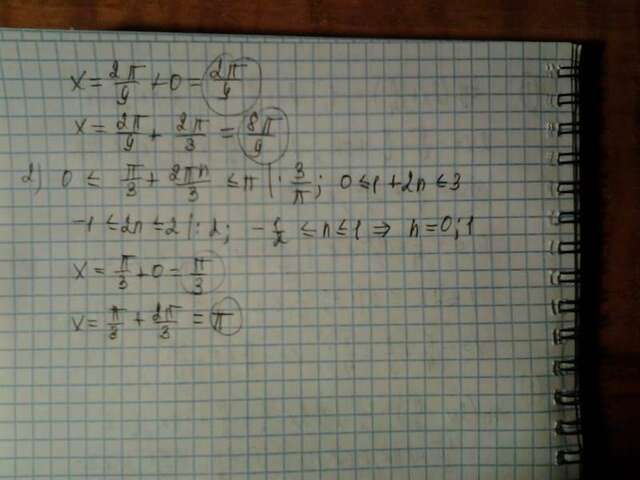 x = 2π/9 + 0 = 2π/9
x = 2π/9 + 2π/3 = 8π/9
2) 0 ≤ π/3 + 2πn/3 ≤ π |· 3/π; 0 ≤ 1 + 2n ≤ 3
-1 ≤ 2n ≤ 2 |: 2; -1/2 ≤ n ≤ 1 ⇒ n = 0; 1
x = π/3 + 0 = π/3
x = π/3 + 2π/3 = π